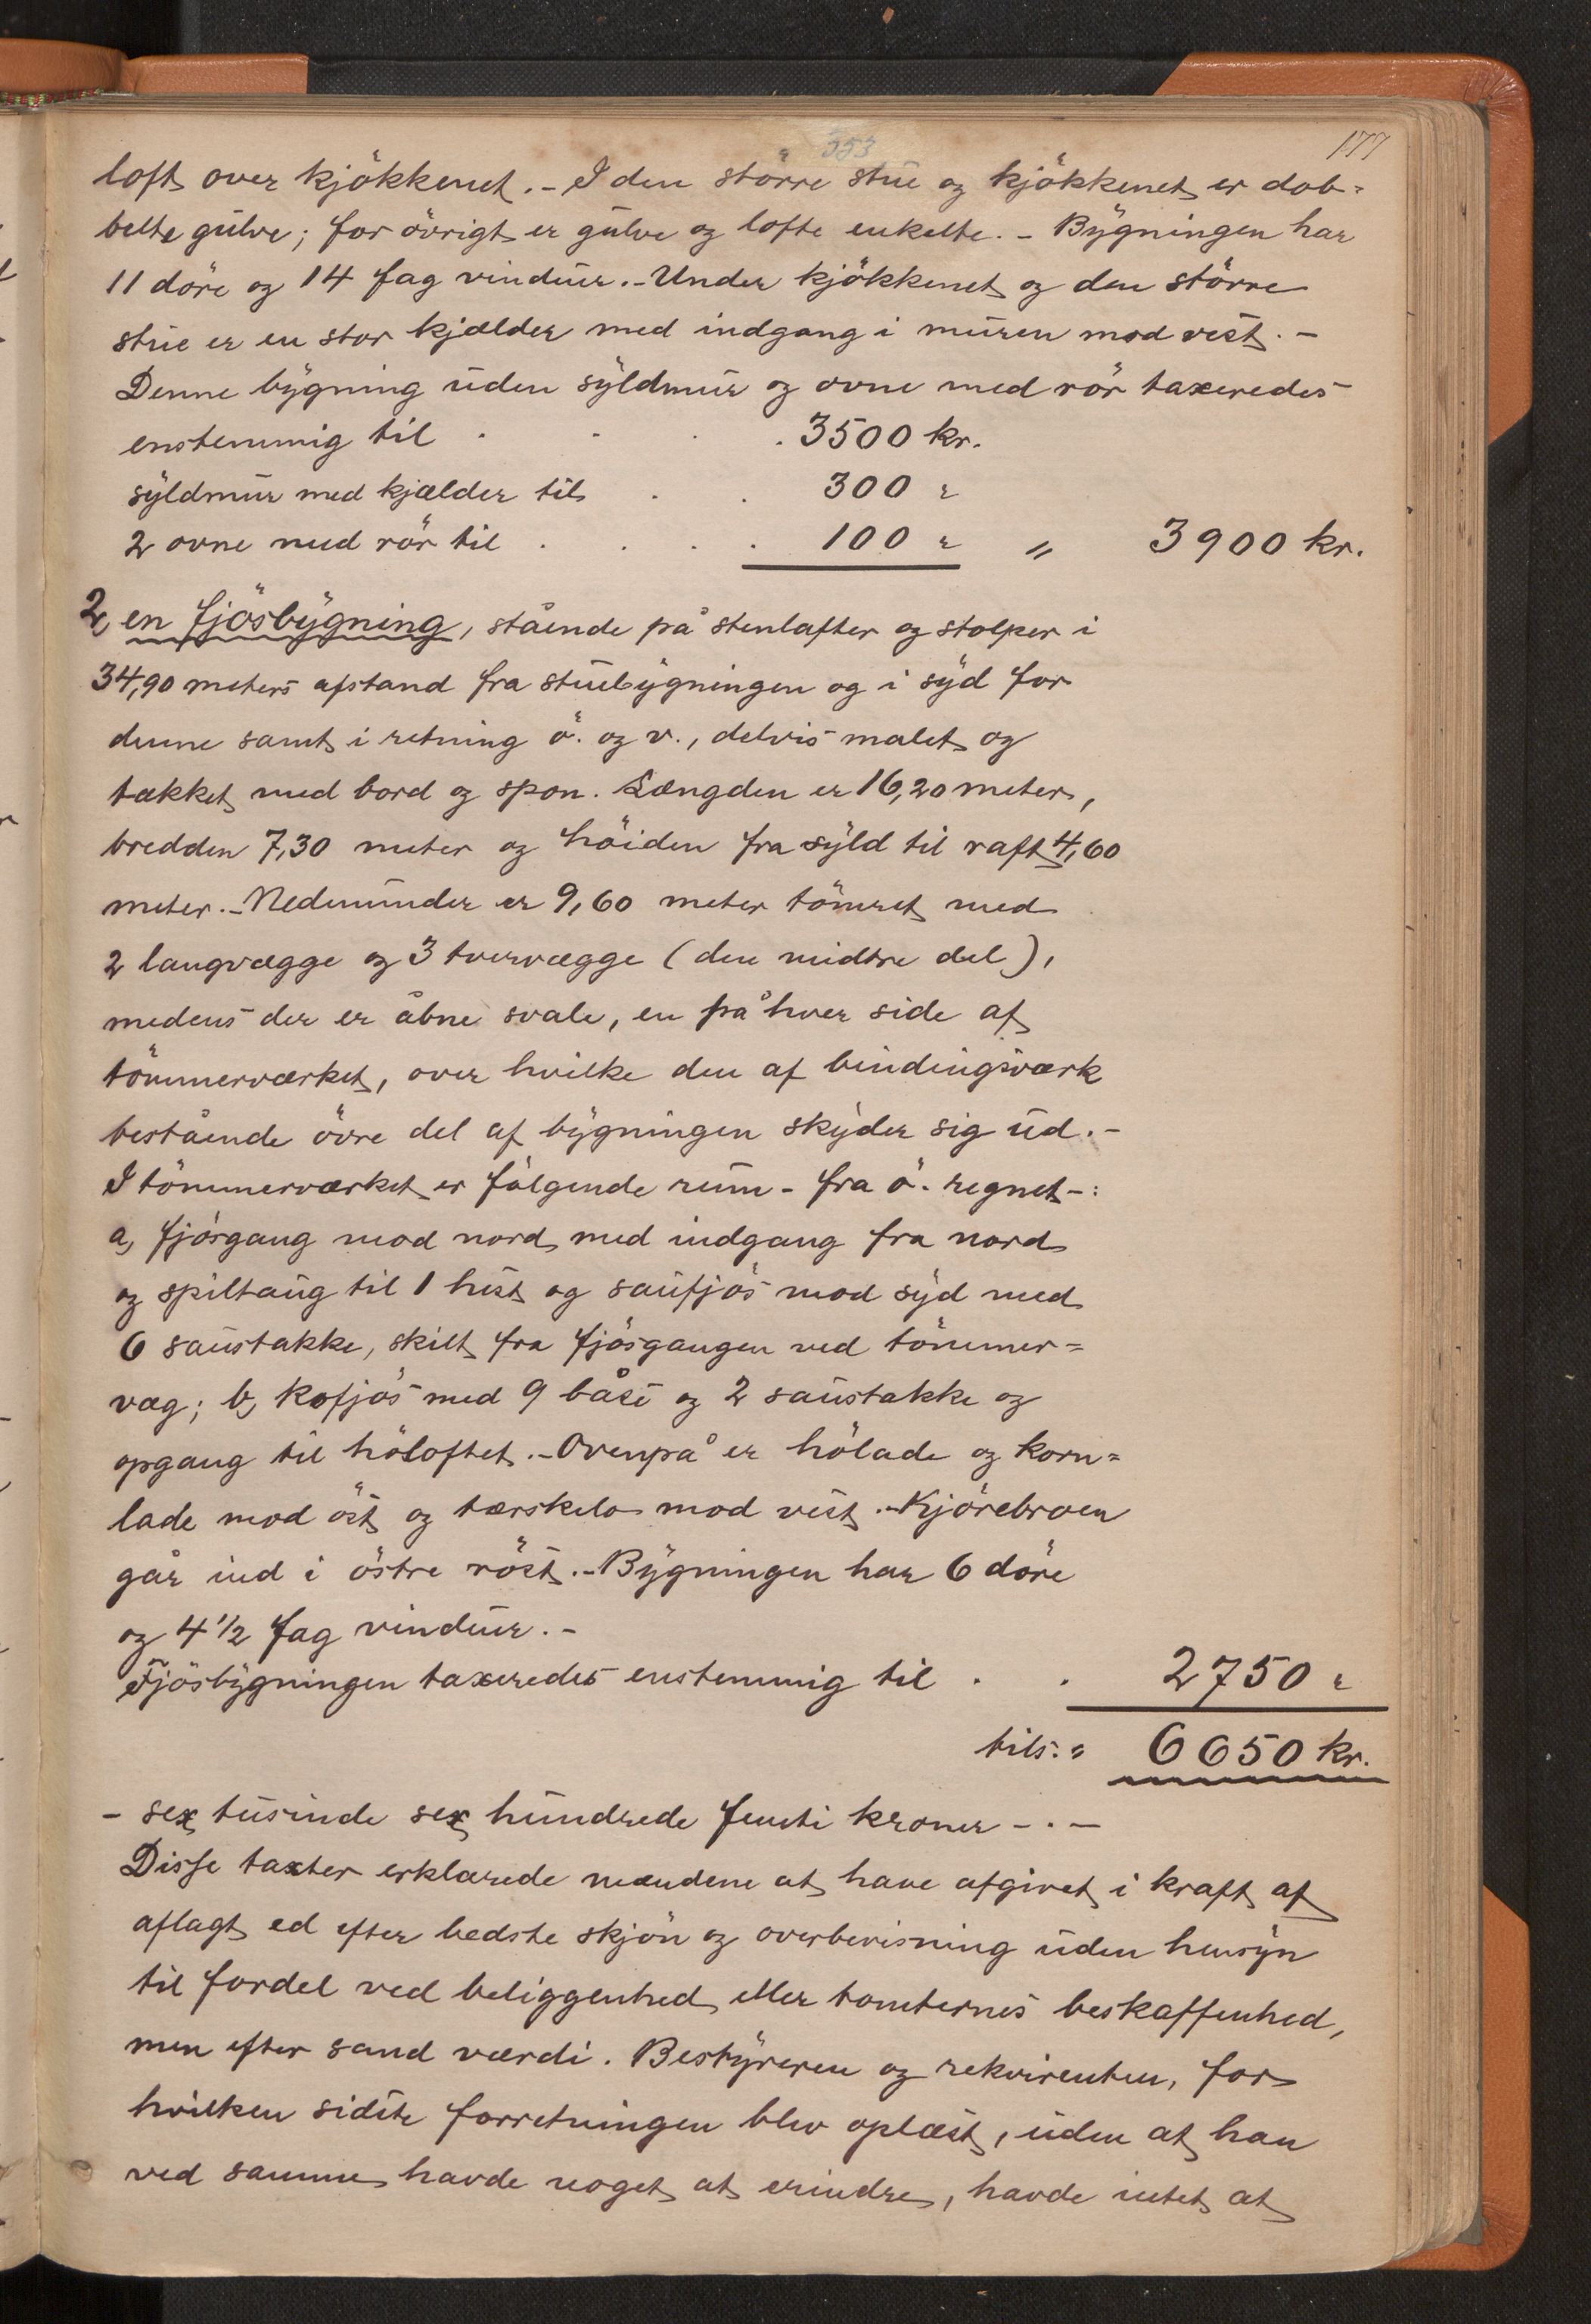 353
177
loft over kjökkenet. - I den större stue og kjökkenet er dob=
belte gulve; for övrigt er gulve og lofte enkelte. - Bygningen har
11 döre og 14 fag vinduer. - Under kjökkenet og den större
stue er en stor kjælder med indgang i muren mod vest. -
Denne bygning uden syldmur og ovne med rör taxeredes
enstemmig til . . . . 3500 kr.
syldmur med kjælder til . . 300 "
2 ovne med rör til . . . . 100 " " 3900 kr.
2, en fjösbygning, stående på stenlafter og stolper i
34,90 meters afstand fra stuebygningen og i syd for
denne samt i retning ö. og v., delvis malet og
tækket med bord og spon. Længden er 16,20 meter,
bredden 7,30 meter og höiden fra syld til raft 4,60
meter. - Nedenunder er 9,60 meter tömret med
2 langvægge og 3 tvervægge (den midtre del),
medens der er åbne svale, en på hver side af
tömmerværket, over hvilke den af bindingsværk
bestående övre del af bygningen skyder sig ud. -
I tömmerværket er fölgende rum - fra ö. regnet -:
a, fjösgang mod nord med indgang fra nord
og spiltaug til 1 hest og saufjös mod syd med
6 saustakke, skilt fra fjösgangen ved tömmer=
væg; b, kofjös med 9 båse og 2 saustakke og
opgang til höloftet. - Ovenpå er hölade og korn=
lade mod öst og tærskelo mod vest. - Kjörebroen
går ind i östre röst. - Bygningen har 6 döre
og 4 1/2 fag vinduer. -
Fjösbygningen taxeredes enstemmig til . . 2750 "
tils. " 6650 kr.
- sex tusinde sex hundrede femti kroner - . -
Disse taxter erklærede mændene at have afgivet i kraft af
aflagt ed efter bedste skjön og overbevisning uden hensyn
til fordel ved beliggenhed eller tomternes beskaffenhed,
men efter sand værdi. Bestyreren og rekvirenten, for
hvilken sidste forretningen blev oplæst, uden at han
ved samme havde noget at erindre, havde intet at